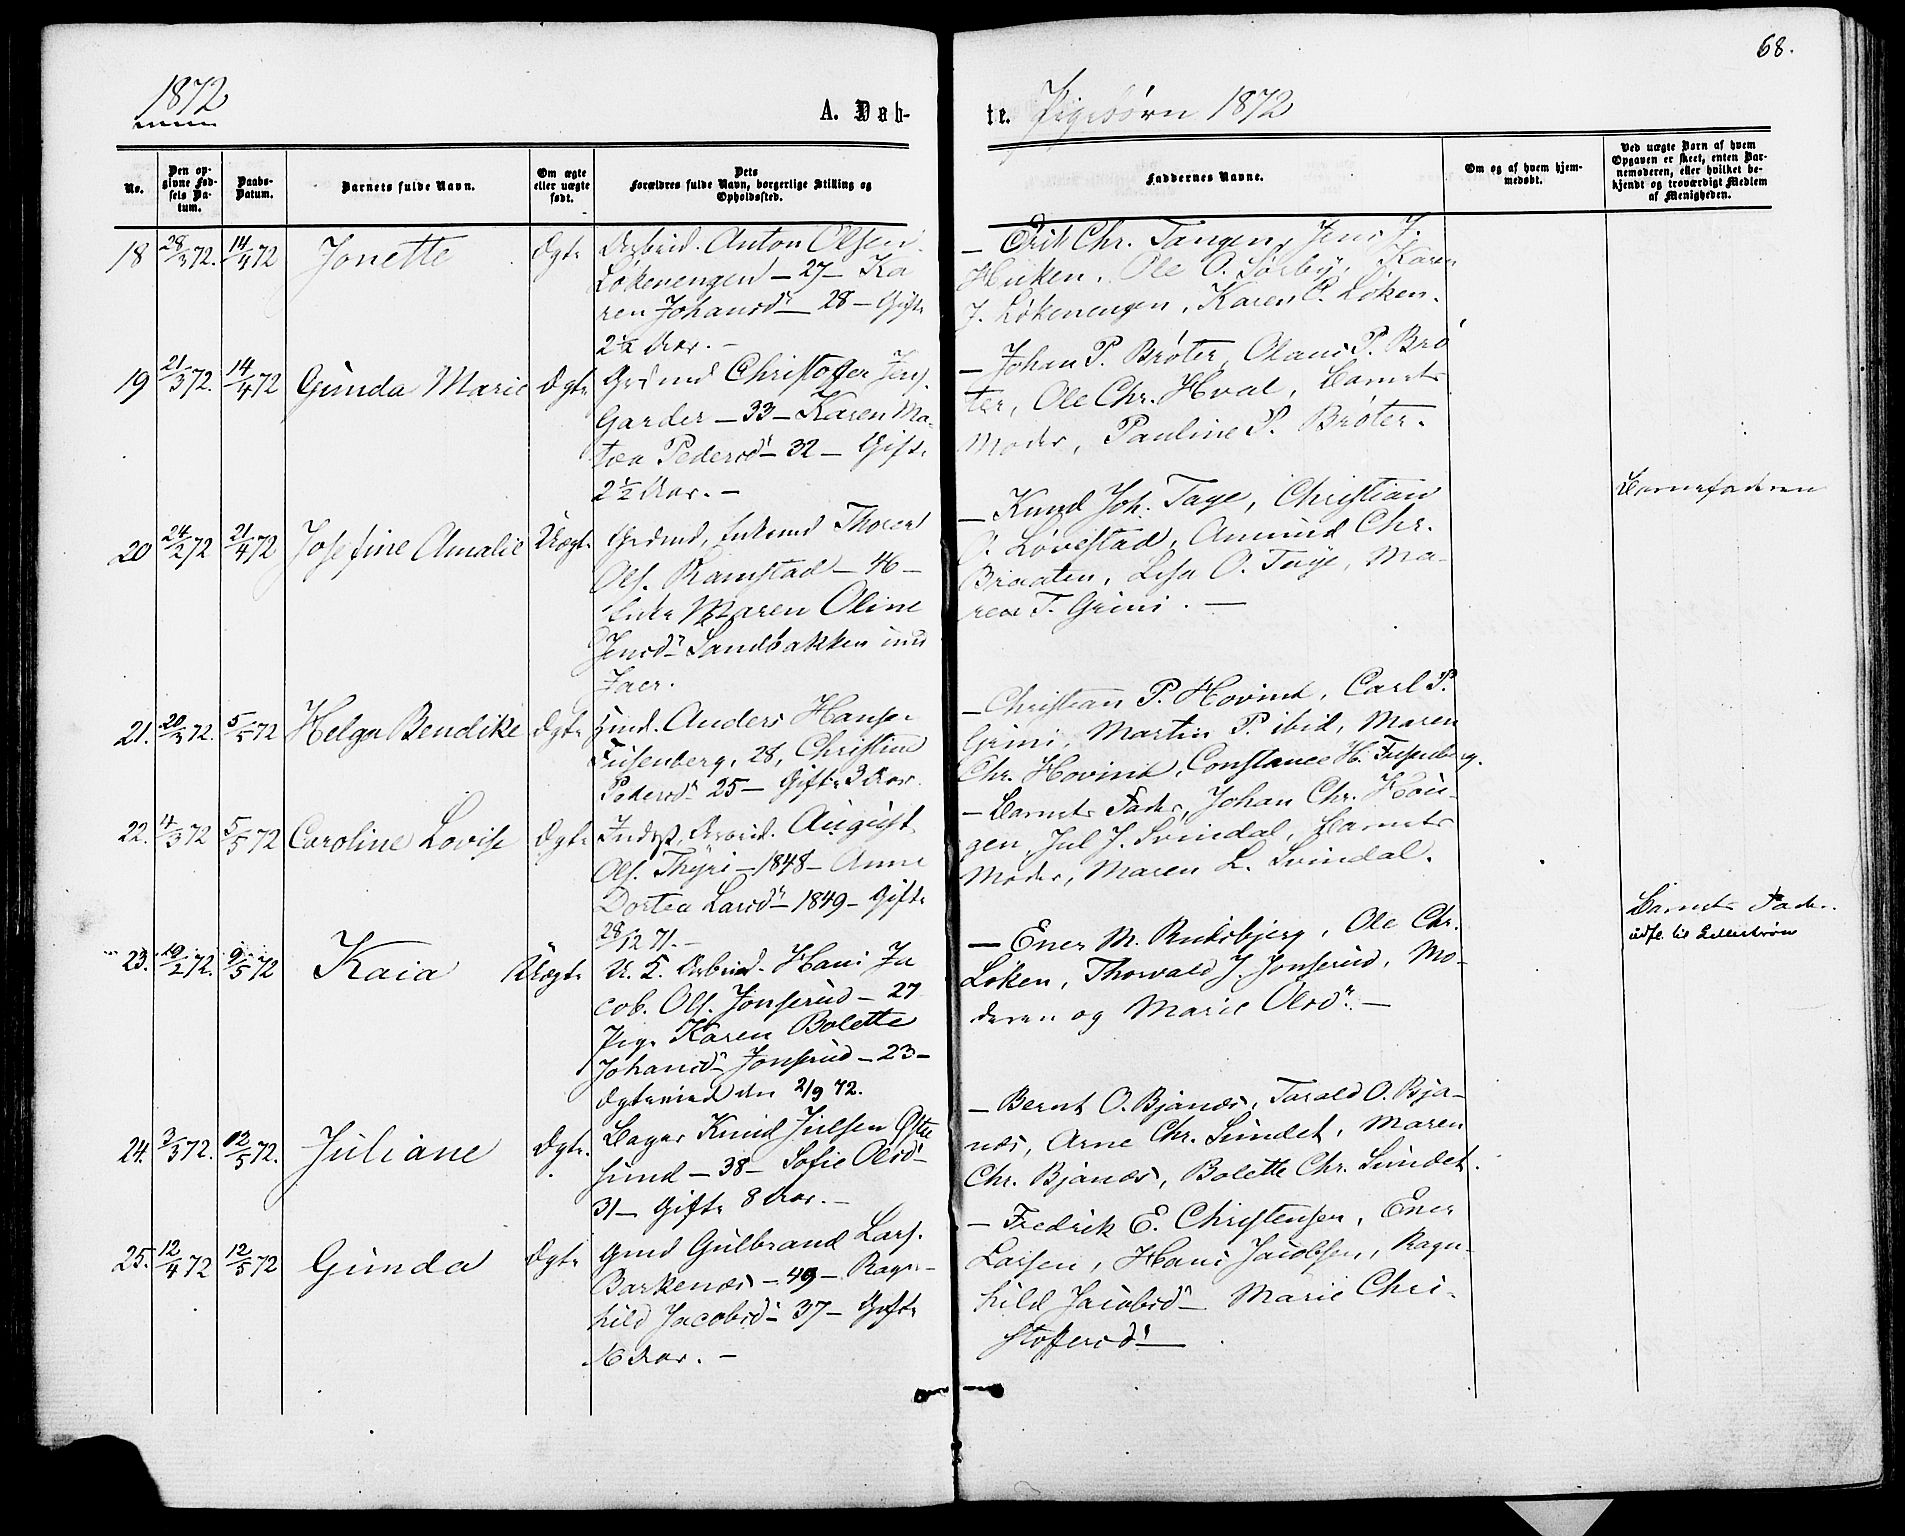 68.
1872
A. Døb-
te. Pigebørn 1872
No.
Den op-
givne Fød-
sels Da-
tum.
Daabs-
Datum.
Barnets fulde Navn.
Om ægte
eller uægte
født.
Dets
Forældres fulde Navn, borgerlige Stilling og
Opholdssted.
Faddernes Navne.
Om og af hvem hjem-
medøbt.
Ved uægte Børn af hvem
Opgaven er skeet, enten Bar-
nemoderen, eller hvilket be-
kjendt og troværdigt Medlem
af Menigheden.
18 28/3 72. 14/4 72 Jonette Ægte Arbeid. Anton Olsen
Løkenengen – 27 – Ka
ren Johansd – 28 – Gifte
2½ Aar. –
– Erik Chr. Tangen, Jens J.
Ole O. Sørby, Karen
J. Løkenengen, Karen P. Løken.
19 21/3 72. 14/4 72 Gunda Marie Ægte Grdmd Christoffer Jens.
Garder – 33 – Karen Ma-
tea Pedersd – 32 – Gifte
2½ Aar. –
– Johan P. Brøter, Olaus P. Brø
ter, Ole Chr. Hval, Barnets
Moder, Pauline P. Brøter.
20 24/2 72 21/4 72 Josefine Amalie Uægte Grdmd, Enkemd
Ols. Ramstad – 46 –
Enke Maren Oline
Jensd Sandbakken
Faer.
– Knud Joh. Taye, Christian
Løvestad, Amund Chr.
Braaten, Lisa O. Taye, Ma-
ren T. Grini. –
Barnefaderen
21. 20/3 72. 5/5 72 Helga Bendike Ægte Anders Hans.
Fusenberg, 28, Christine
Pedersd 25 – Gifte 3 Aar.
– Christian P. Hovind, Carl P.
Grini, Martin P. ibid, Maren
Chr. Hovind, Constance H. Fusenberg.
22. 4/3 72 5/5 72 Caroline Lovise Ægte Indst, Arbeid. August
Ols. Thyri – 1848 – Anne
Dortea Larsd – 1849 – Gifte
28/12 71. –
– Barnets Fader, Johan Chr. Hau-
gen, Jul J. Svindal, Barnets
Moder, Maren L. Svindal.
23. 19/2 72. 9/5 72 Kaia Uægte U. K. Arbeid. Hans Ja
cob. Ols. Jonserud – 27
Pige Karen Bolette
Johansd Jonserud – 23 –
Ægteviet den 2/9 72.
– Ener M. Rudsbjerg, Ole Chr.
Løken, Thorvald J. Jonserud, Mo-
deren og Marie Olsd. –
Barnets Fader
udfl. til Lillestrøm
24. 3/3 72. 12/5 72. Juliane Ægte. Bager Knud Julsen Øste
sund – 38 – Sofie Olsd –
31 – Gifte 8 Aar. –
– Bernt O. Bjanes, Tarald O. Bja-
nes, Arne Chr. Sundet, Maren
Chr. Bjanes, Bolette Chr. Sundet.
25. 12/4 72 12/5 72 Gunda Ægte Gmd Gulbrand Lars.
Barkenæs – 49 – Ragn-
hild Jacobsd – 37 – Gifte
16 Aar. –
– Fredrik E. Christensen, Ener
Larsen, Hans Jacobsen, Ragn-
hild Jacobsd – Marie Chri-
stoffersd –